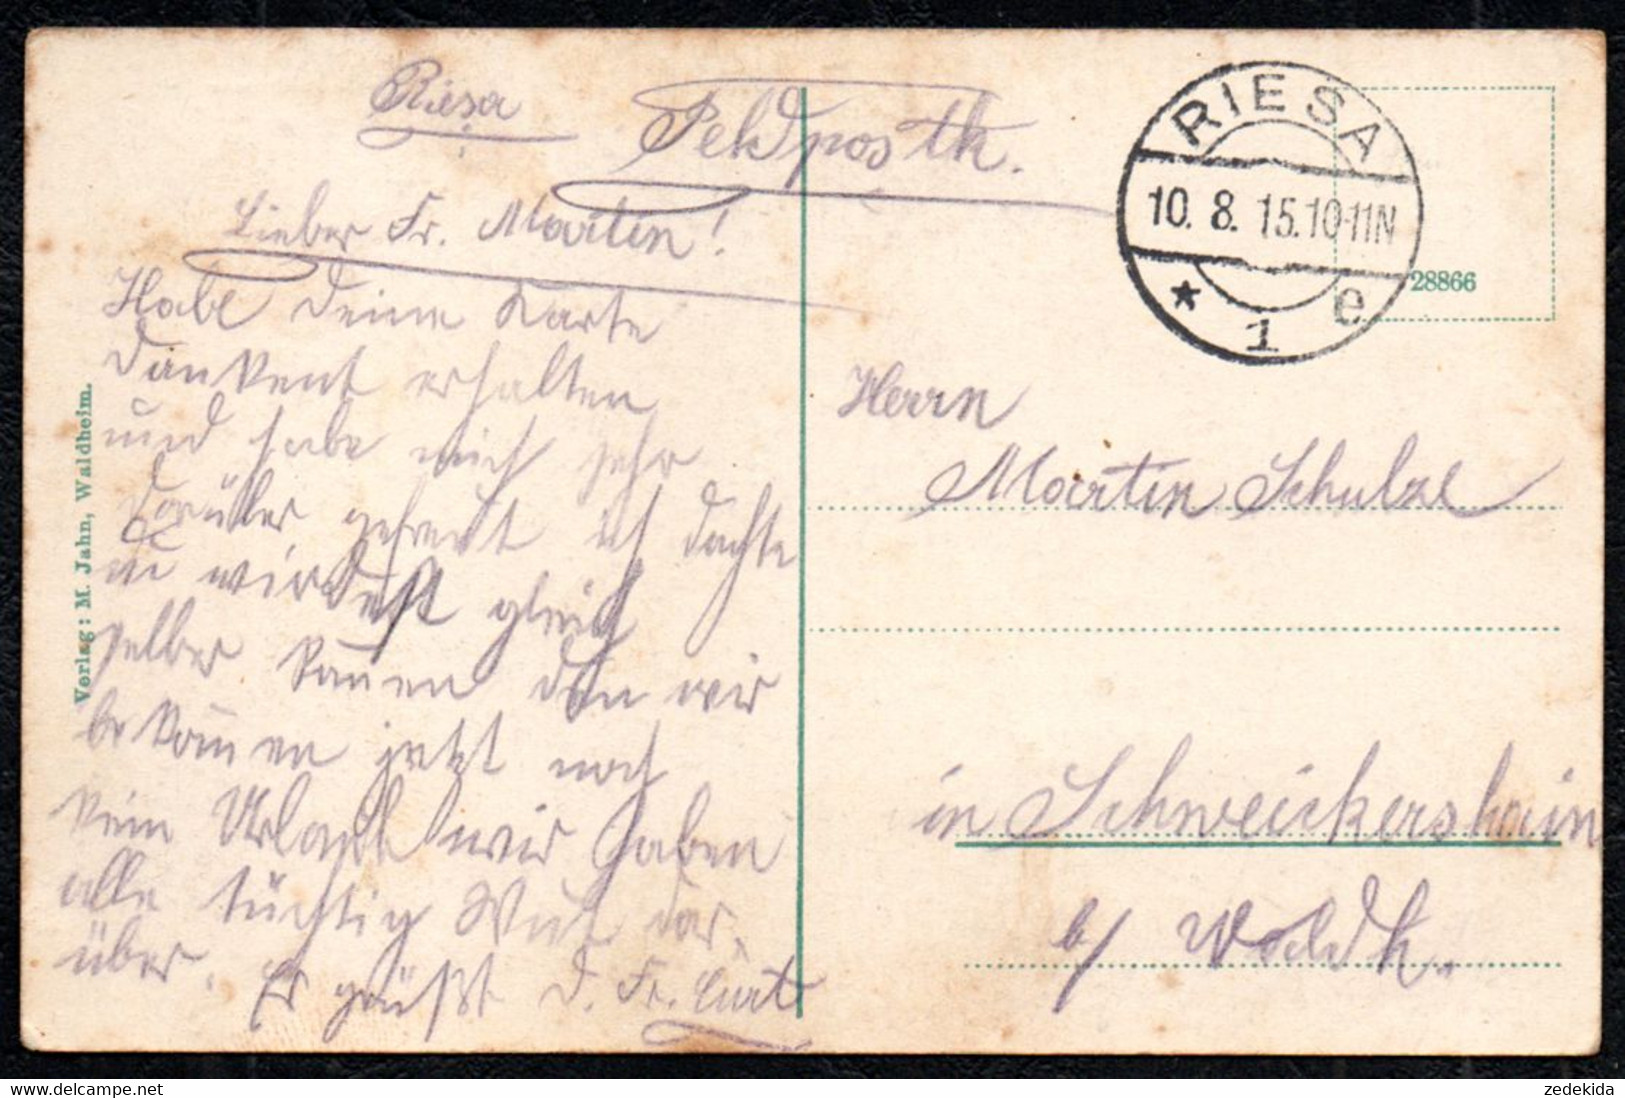 Riesa
Feldpostk.
Lieber Fr. Martin!
Habe deine Karte
dankent erhalten
und habe mich sehr
darüber gefreut ich dachte
du wirdest gleich
selber kauen den wir
bekommen jetzt noch
kein Urlaub wir haben
alle tüchtig Wut dar-
über. Es grüßt d. Fr. Curt
Verlag: M. Jahn, Waldheim.
RIESA
10. 8. 15. 10-11N
* 1 e
28866
Herrn
Martin Schulze
in Schweickershain
b/ Waldh.
zedekida